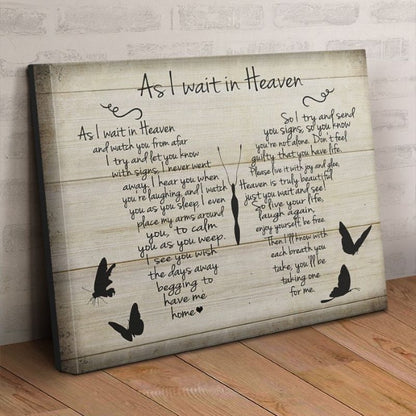 As I wait in Heaven
As I wait in Heaven
and watch you from afar
I try and let you know
with signs, I never went
away, I hear you when
you're laughing, and I watch
you as you sleep, I even
place my arms around
you, to calm
you as you weep.
I see you wish
the days away
begging to
have me
home
So I try and send
you signs, so you know
you're not alone. Don't feel
guilty that you have life.
Please live it with joy and glee,
Heaven is truly beautiful
just you wait and see!
So live your life,
laugh again,
enjoy yourself be free.
Then I'll know with
each breath you
take, you'll be
taking one
for me.